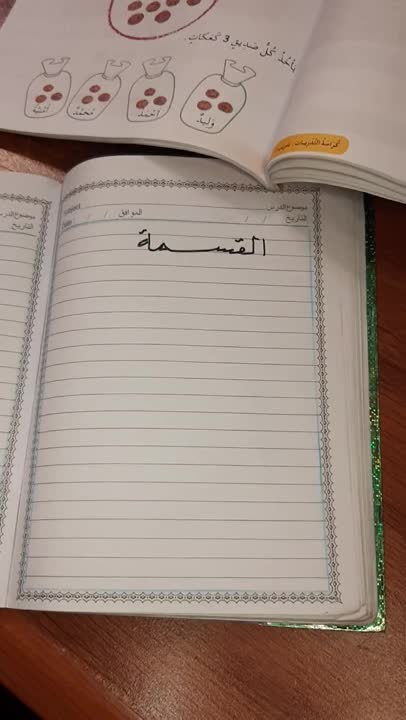 يَأْخُذُ كُلُّ صَدِيقٍ 3 كَعْكَاتٍ.
وَلِيدٌ أَحْمَدُ مُحَمَّدٌ
كُرَّاسَةُ التَّدْرِيبَات
موضوع الدرس
التاريخ / / الموافق / /
القسمة
موضوع الدرس
التاريخ